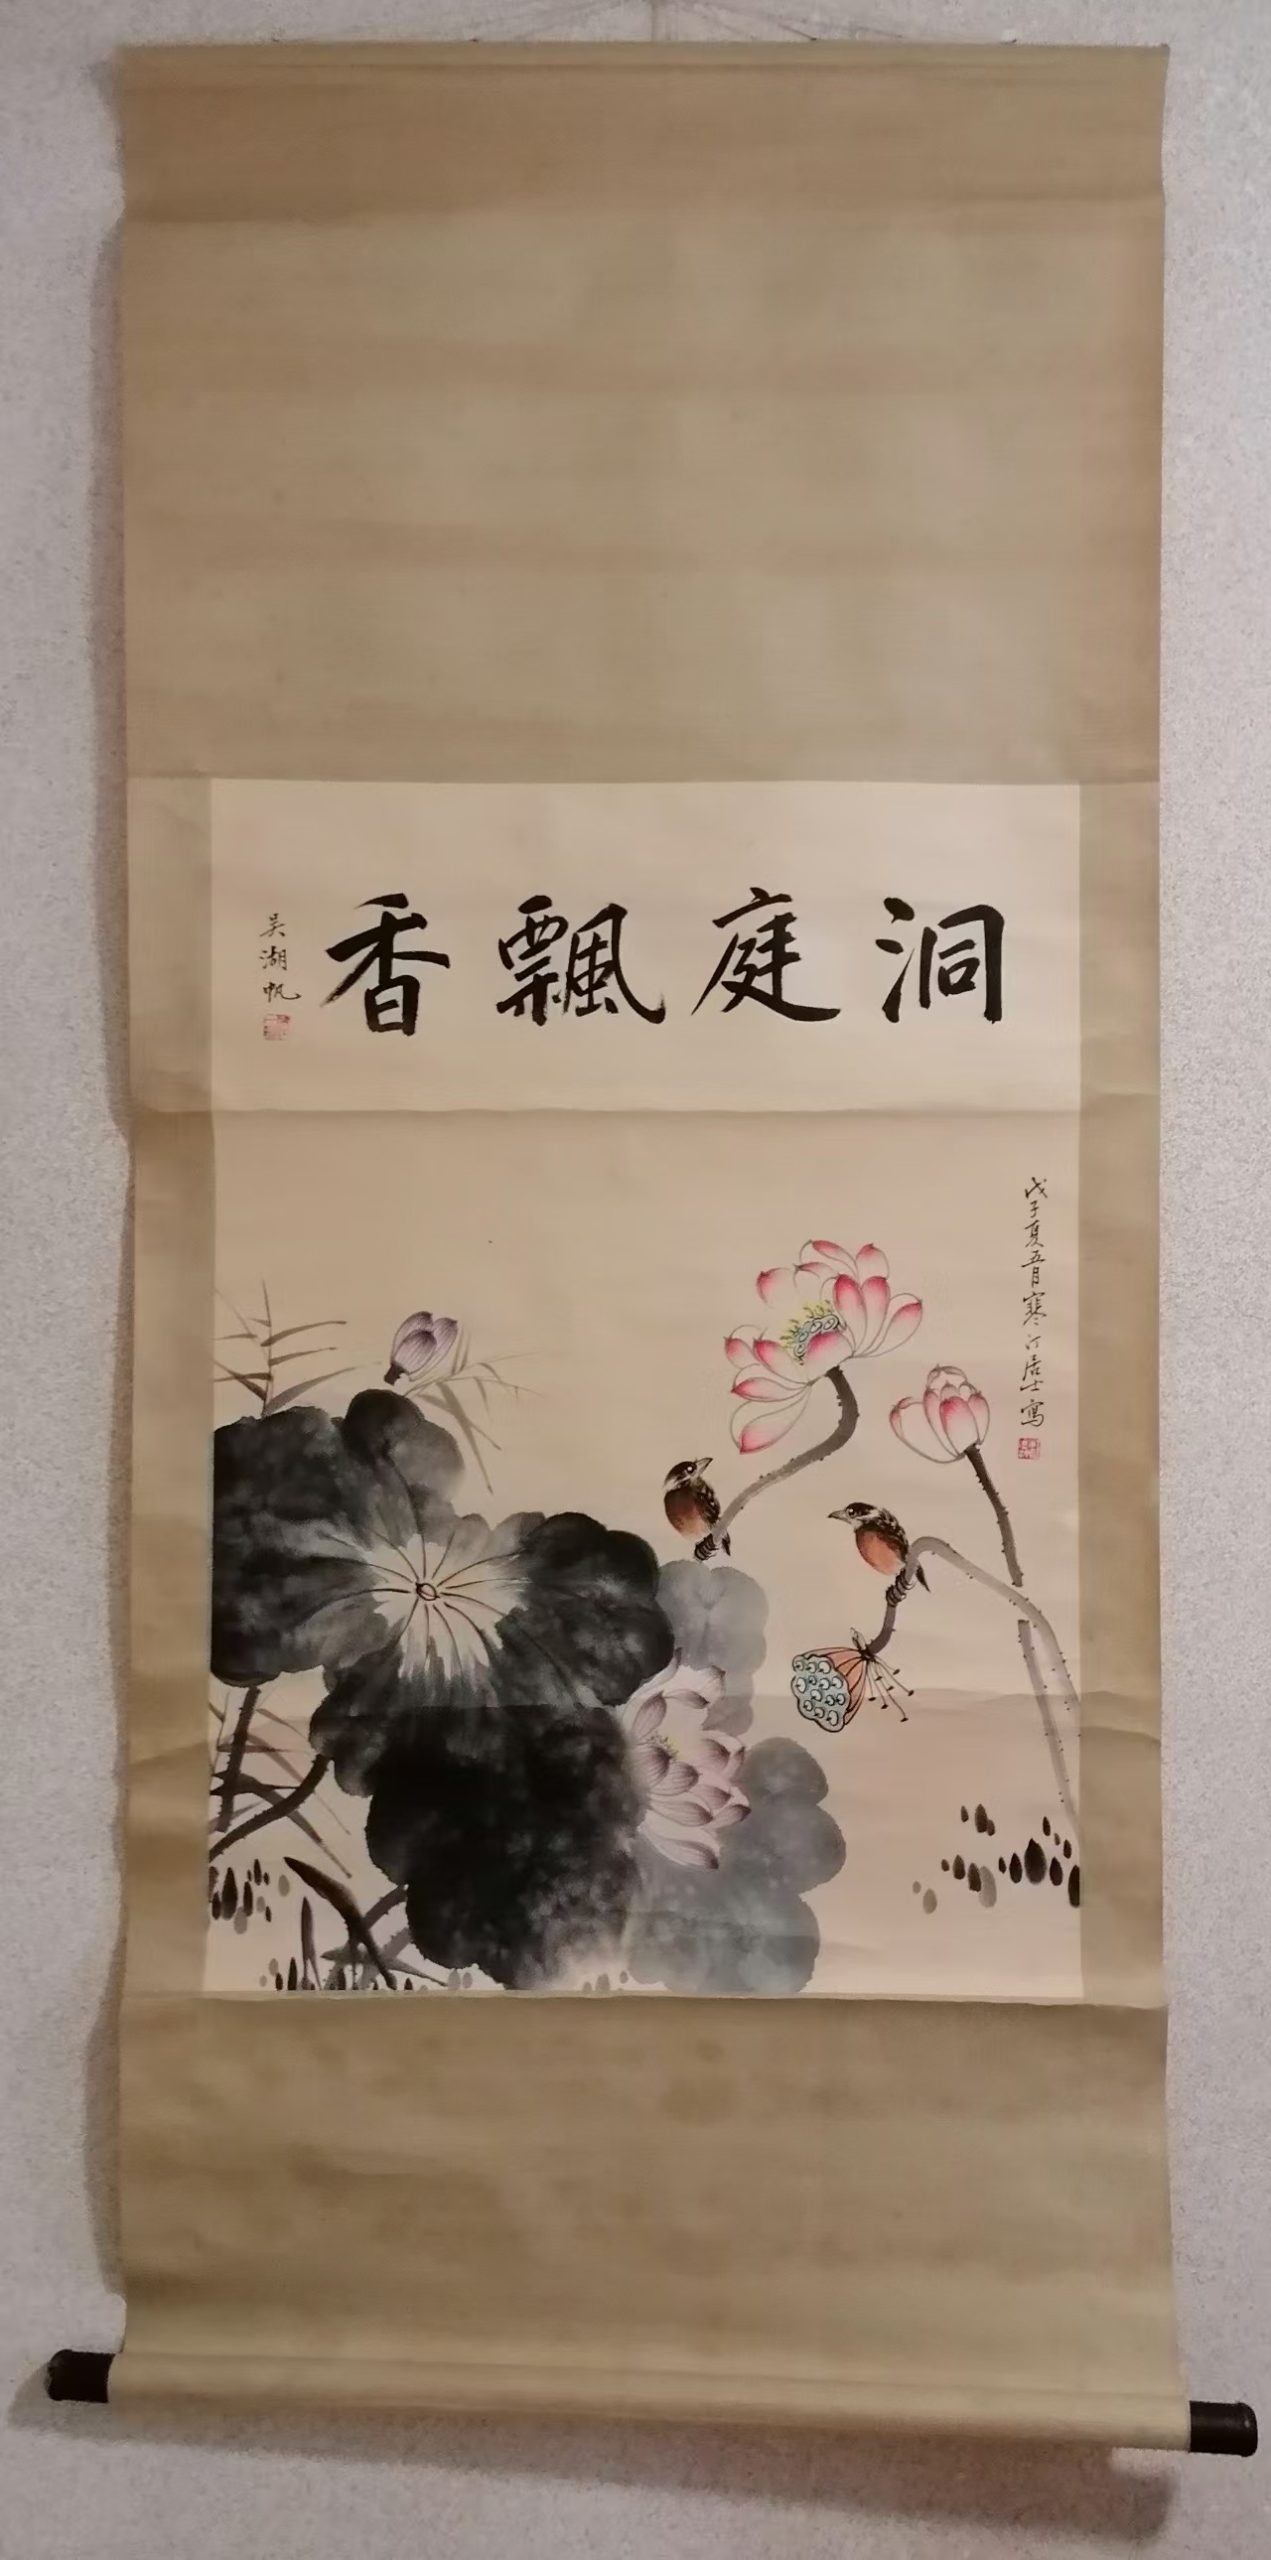 洞庭飄香
吴湖帆
戊子夏五月寒汀居士寫